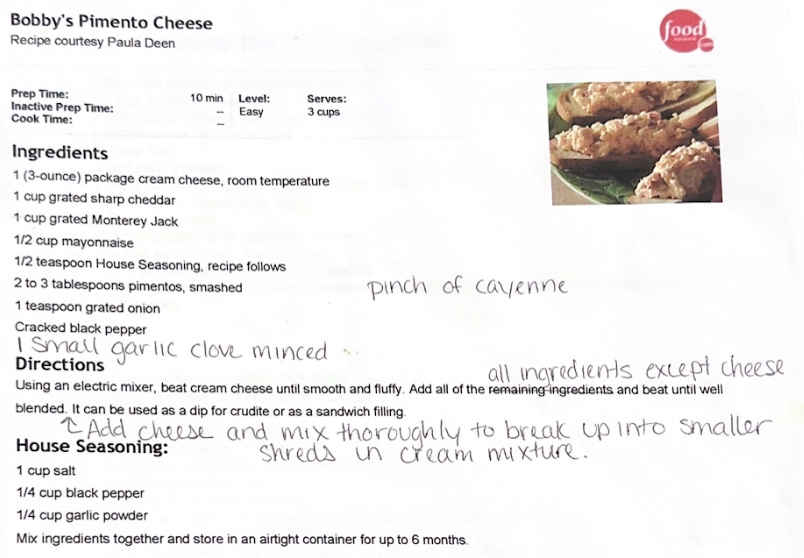 Bobby's Pimento Cheese
Recipe courtesy Paula Deen
food
Prep Time: 10 min Level: Serves:
Inactive Prep Time: -- Easy 3 cups
Cook Time: --
Ingredients
1 (3-ounce) package cream cheese, room temperature
1 cup grated sharp cheddar
1 cup grated Monterey Jack
1/2 cup mayonnaise
1/2 teaspoon House Seasoning, recipe follows
2 to 3 tablespoons pimentos, smashed
pinch of cayenne
1 teaspoon grated onion
Cracked black pepper
1 small garlic clove minced
Directions
all ingredients except cheese
Using an electric mixer, beat cream cheese until smooth and fluffy. Add all of the remaining ingredients and beat until well
blended. It can be used as a dip for crudite or as a sandwich filling.
Add cheese and mix thoroughly to break up into smaller
shreds in cream mixture.
House Seasoning:
1 cup salt
1/4 cup black pepper
1/4 cup garlic powder
Mix ingredients together and store in an airtight container for up to 6 months.